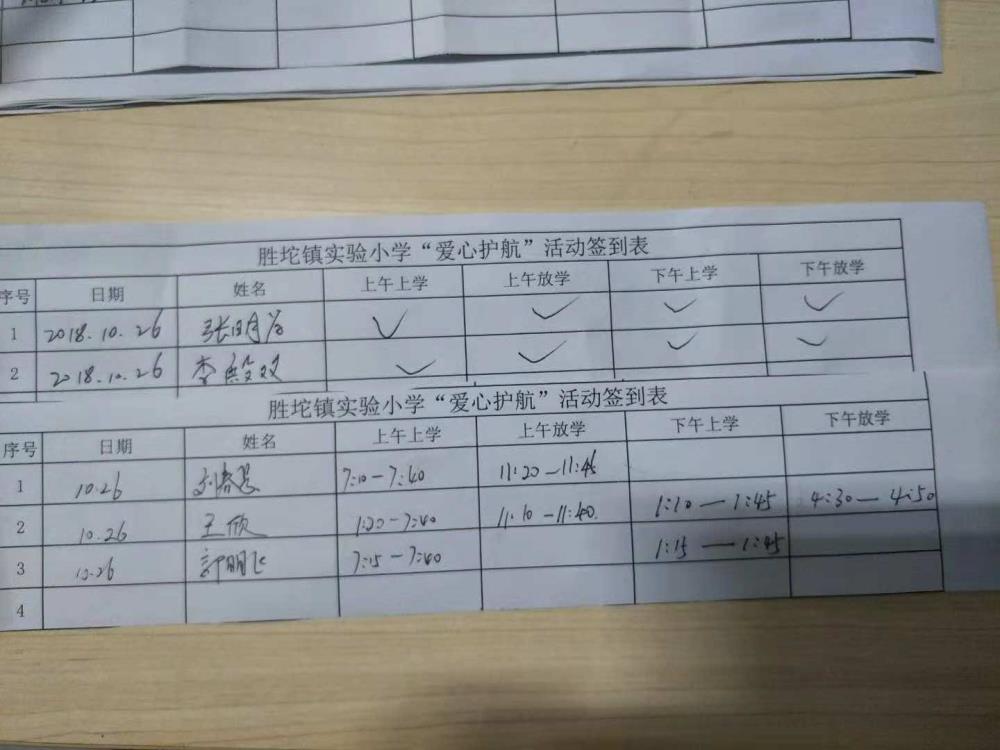 胜坨镇实验小学“爱心护航”活动签到表
序号 日期 姓名 上午上学 上午放学 下午上学 下午放学
1 2018.10.26 ✓ ✓ ✓ ✓
2 2018.10.26 李 ✓ ✓ ✓ ✓
胜坨镇实验小学“爱心护航”活动签到表
序号 日期 姓名 上午上学 上午放学 下午上学 下午放学
1 10.26 7:10-7:40 11:20-11:46
2 10.26 王欣 1:20-7:40 11:10-11:40. 1:10-1:45 4:30-4:50
3 10.26 郭明飞 7:15-7:40 1:15-1:45
4